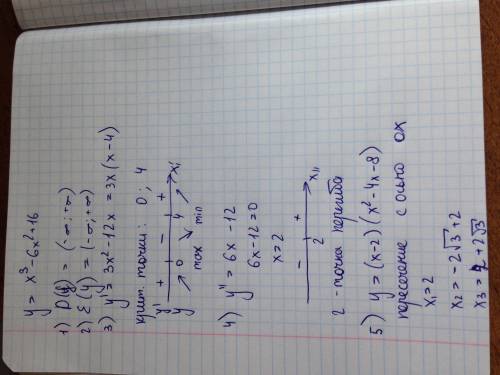 y = x³-6x²+16
1) D(y) = (-∞;+∞)
2) E(y) = (-∞;+∞)
3) y' = 3x²-12x = 3x(x-4)
крит. точки: 0; 4
y' + - + x,
y 0 4
max min
4) y" = 6x -12
6x-12=0
x=2
- + x,,
2
2 - точка перегиба
5) y = (x-2)(x²-4x-8)
пересечение с осью ох
x₁=2
x₂ = -2√3+2
x₃ = 2+2√3